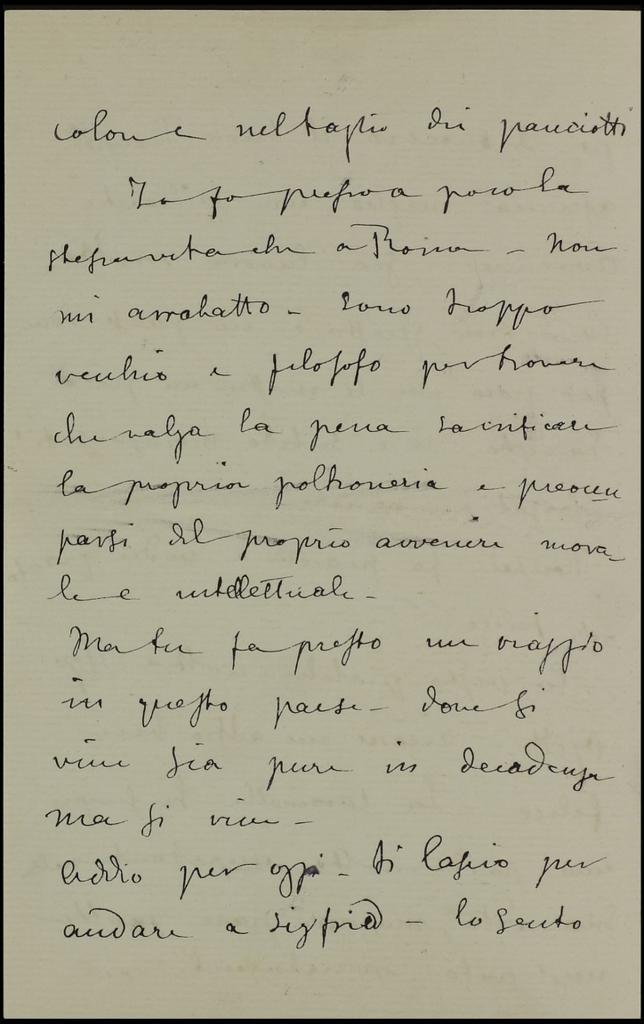 colori e nel taglio dei panciotti
Io fo presso a poco la
stessa vita che a Roma – Non
mi arrabatto – sono troppo
vecchio e filosofo per trovare
che valga la pena sacrificare
la propria poltroneria e preoccu
parsi del proprio avvenire mora-
le e intellettuale –
Ma tu fa presto un viaggio
in questo paese – dove si
vive sia pure in decadenza
ma si vive –
Addio per oggi – ti lascio per
andare a Sigfrid – lo sento